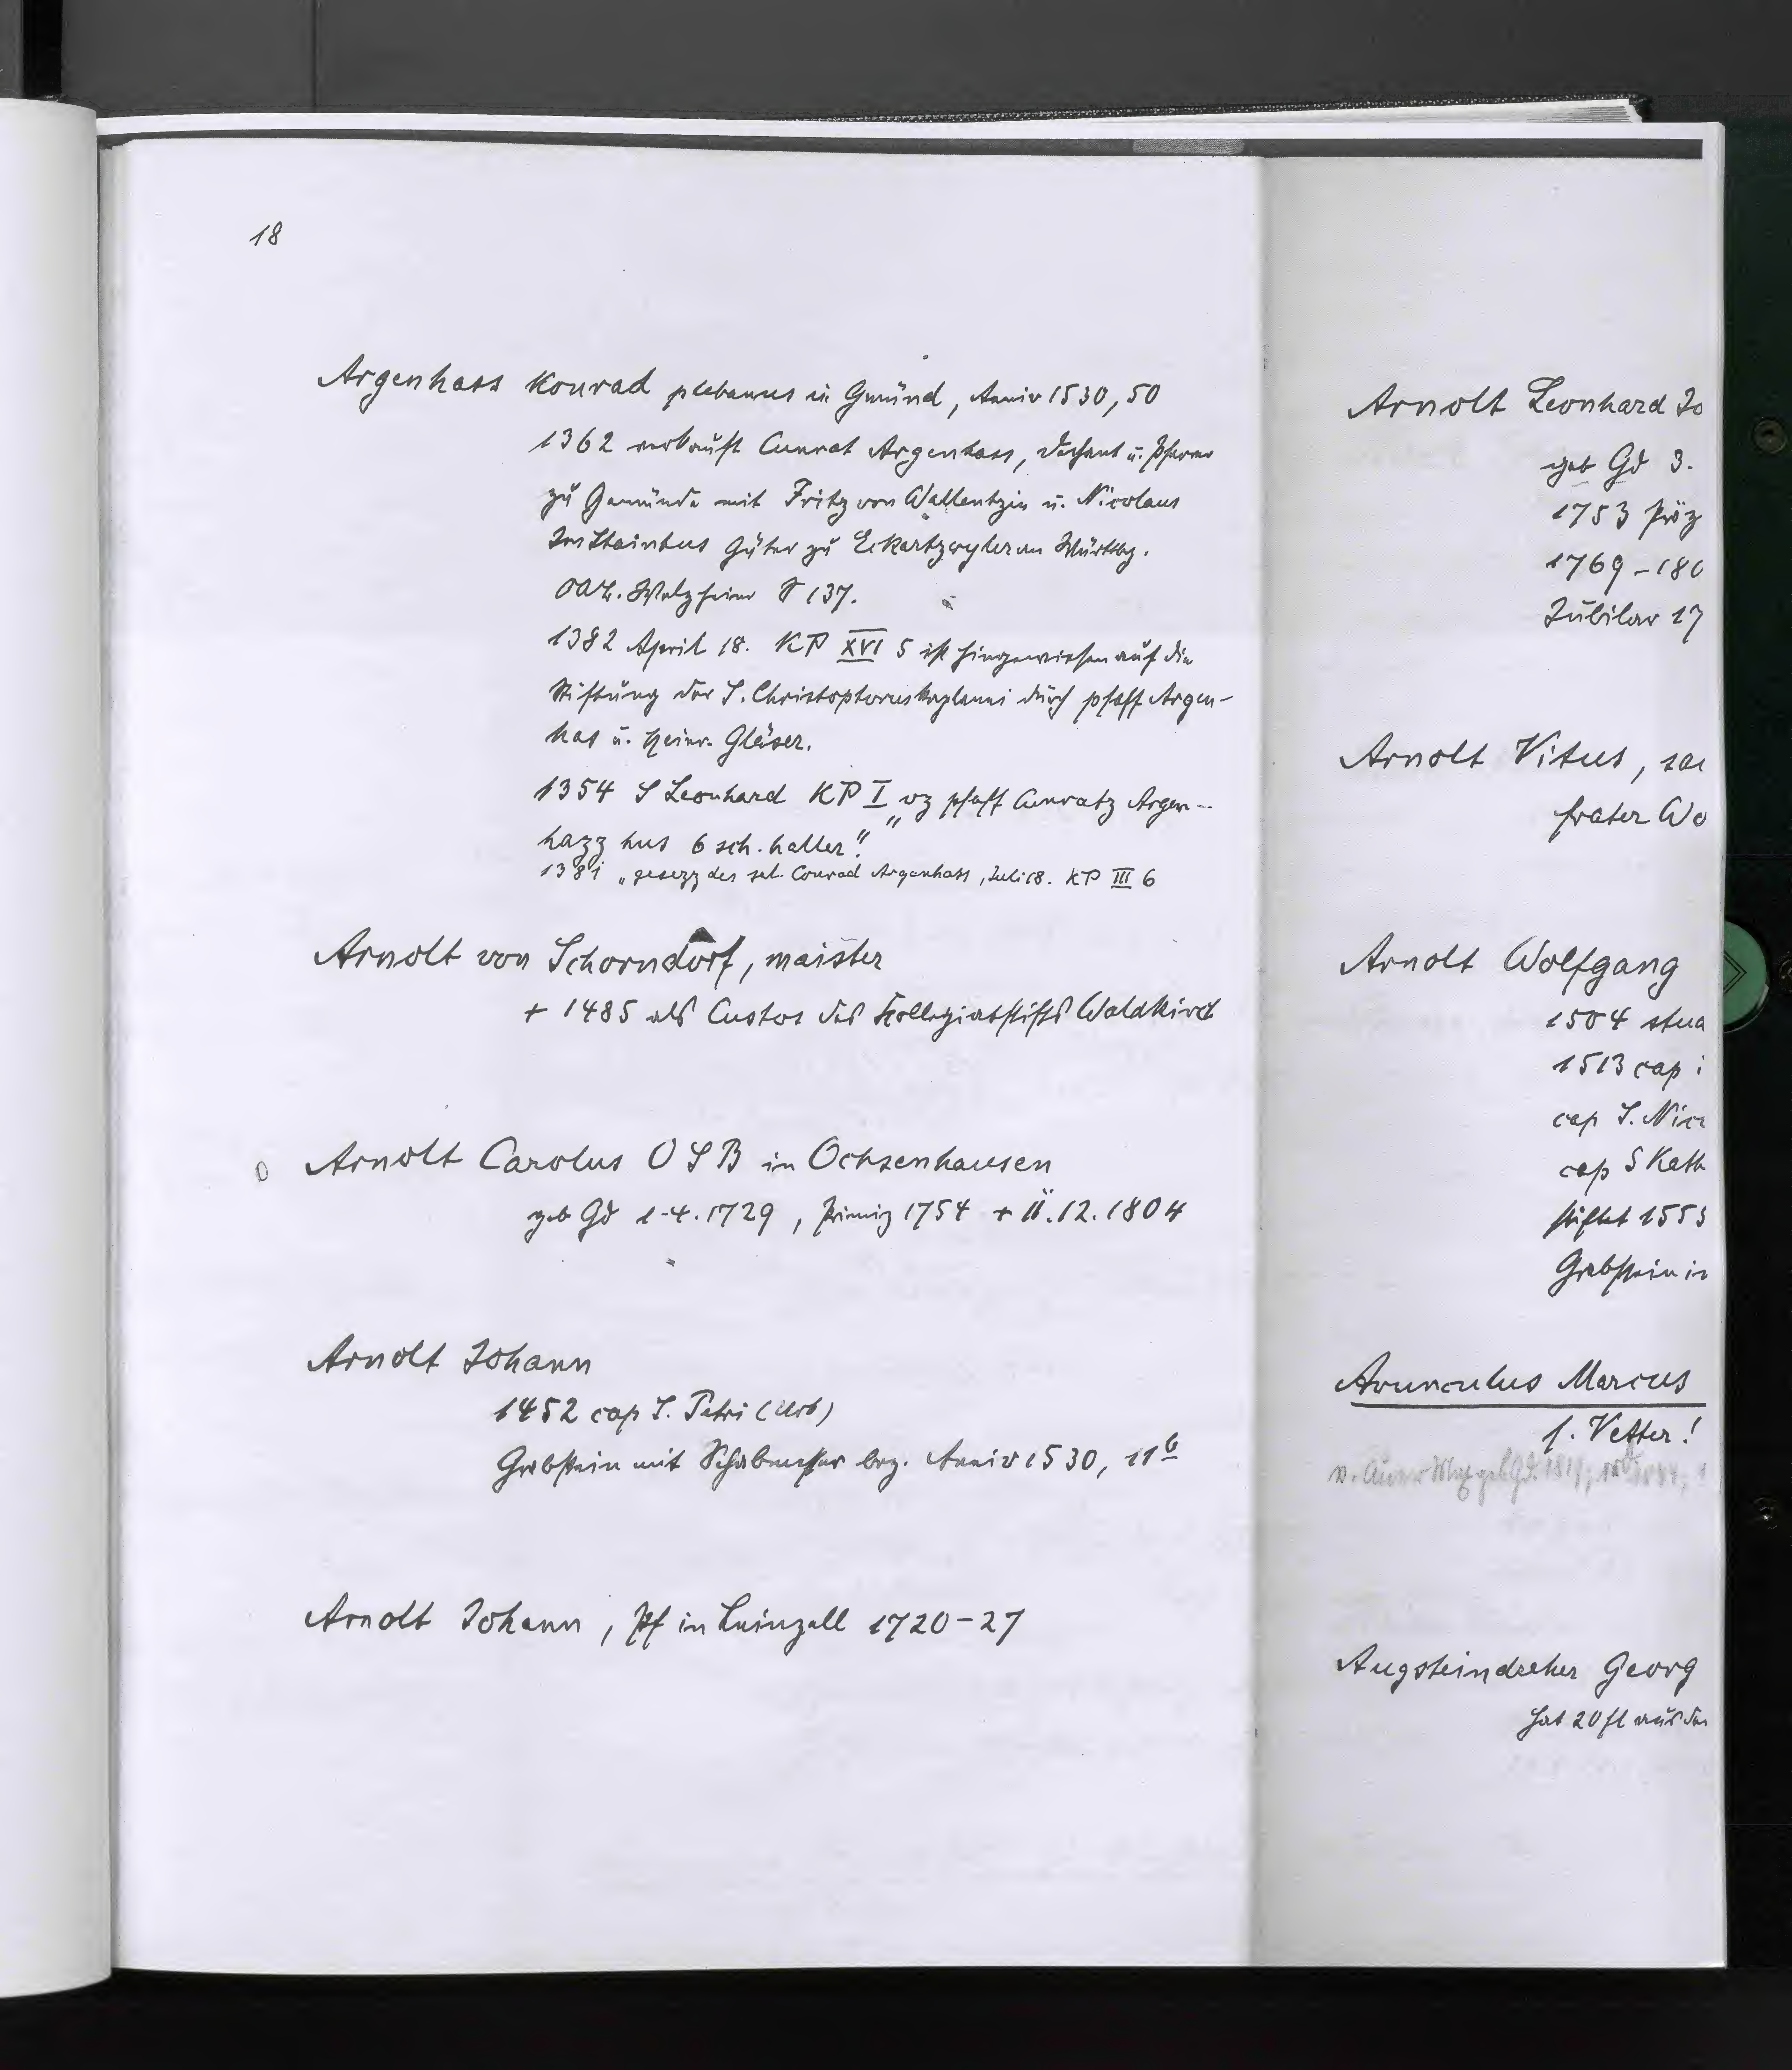 18
Argenhass Konrad plebanus in Gmünd, Anniv 1530, 50
1362 verkauft Cunrat Argenhass, Dechant u. Pfarrer
zu Gemünde mit Fritz von Wallentzin u. Nicolaus
Im Stainhus Güter zu Eckartzwyler an Württbg.
OA. Welzheim S 137.
1382 April 18. KP XVI 5 ist hingewiesen auf die
Stiftung der S. Christophoruskaplanei durch pfaff Argen-
has u. Heinr. Gläser.
1354 S Leonhard KP I „uz pfaff Cunratz Argen-
hazz hus 6 sch. haller."
1381 „gesezz des sel. Conrad Argenhass, Juli 18. KP III 6
Arnolt von Schorndorf, maister
+ 1485 als Custos des Kollegiatstifts Waldkirch
Arnolt Carolus O S B in Ochsenhausen
geb Gd 1.4.1729, Primiz 1754 + 11.12.1804
Arnolt Johann
1452 cap S. Petri (Urb)
Grabstein mit Schabmesser bez. Anniv 1530, 11b
Arnolt Johann, Pf in Leinzell 1720-27
Arnolt Leonhard Jo
geb Gd 3.
1753
1769-180
Jubilar 17
Arnolt Vitus, sac
frater Wo
Arnolt Wolfgang
1504 stud
1513 cap i
cap S. Nico
cap S Kath
stiftet 1553
Grabstein in
Avunculus Marcus
f. Vetter!
Augsteindreher Georg
hat 20 fl aus der